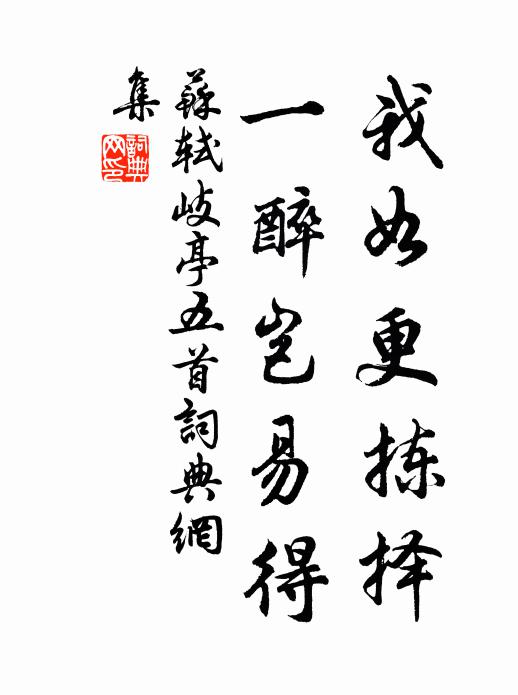 我如更拣择
一醉岂易得
蘇軾岐亭五首詞典網
集
詞典网印